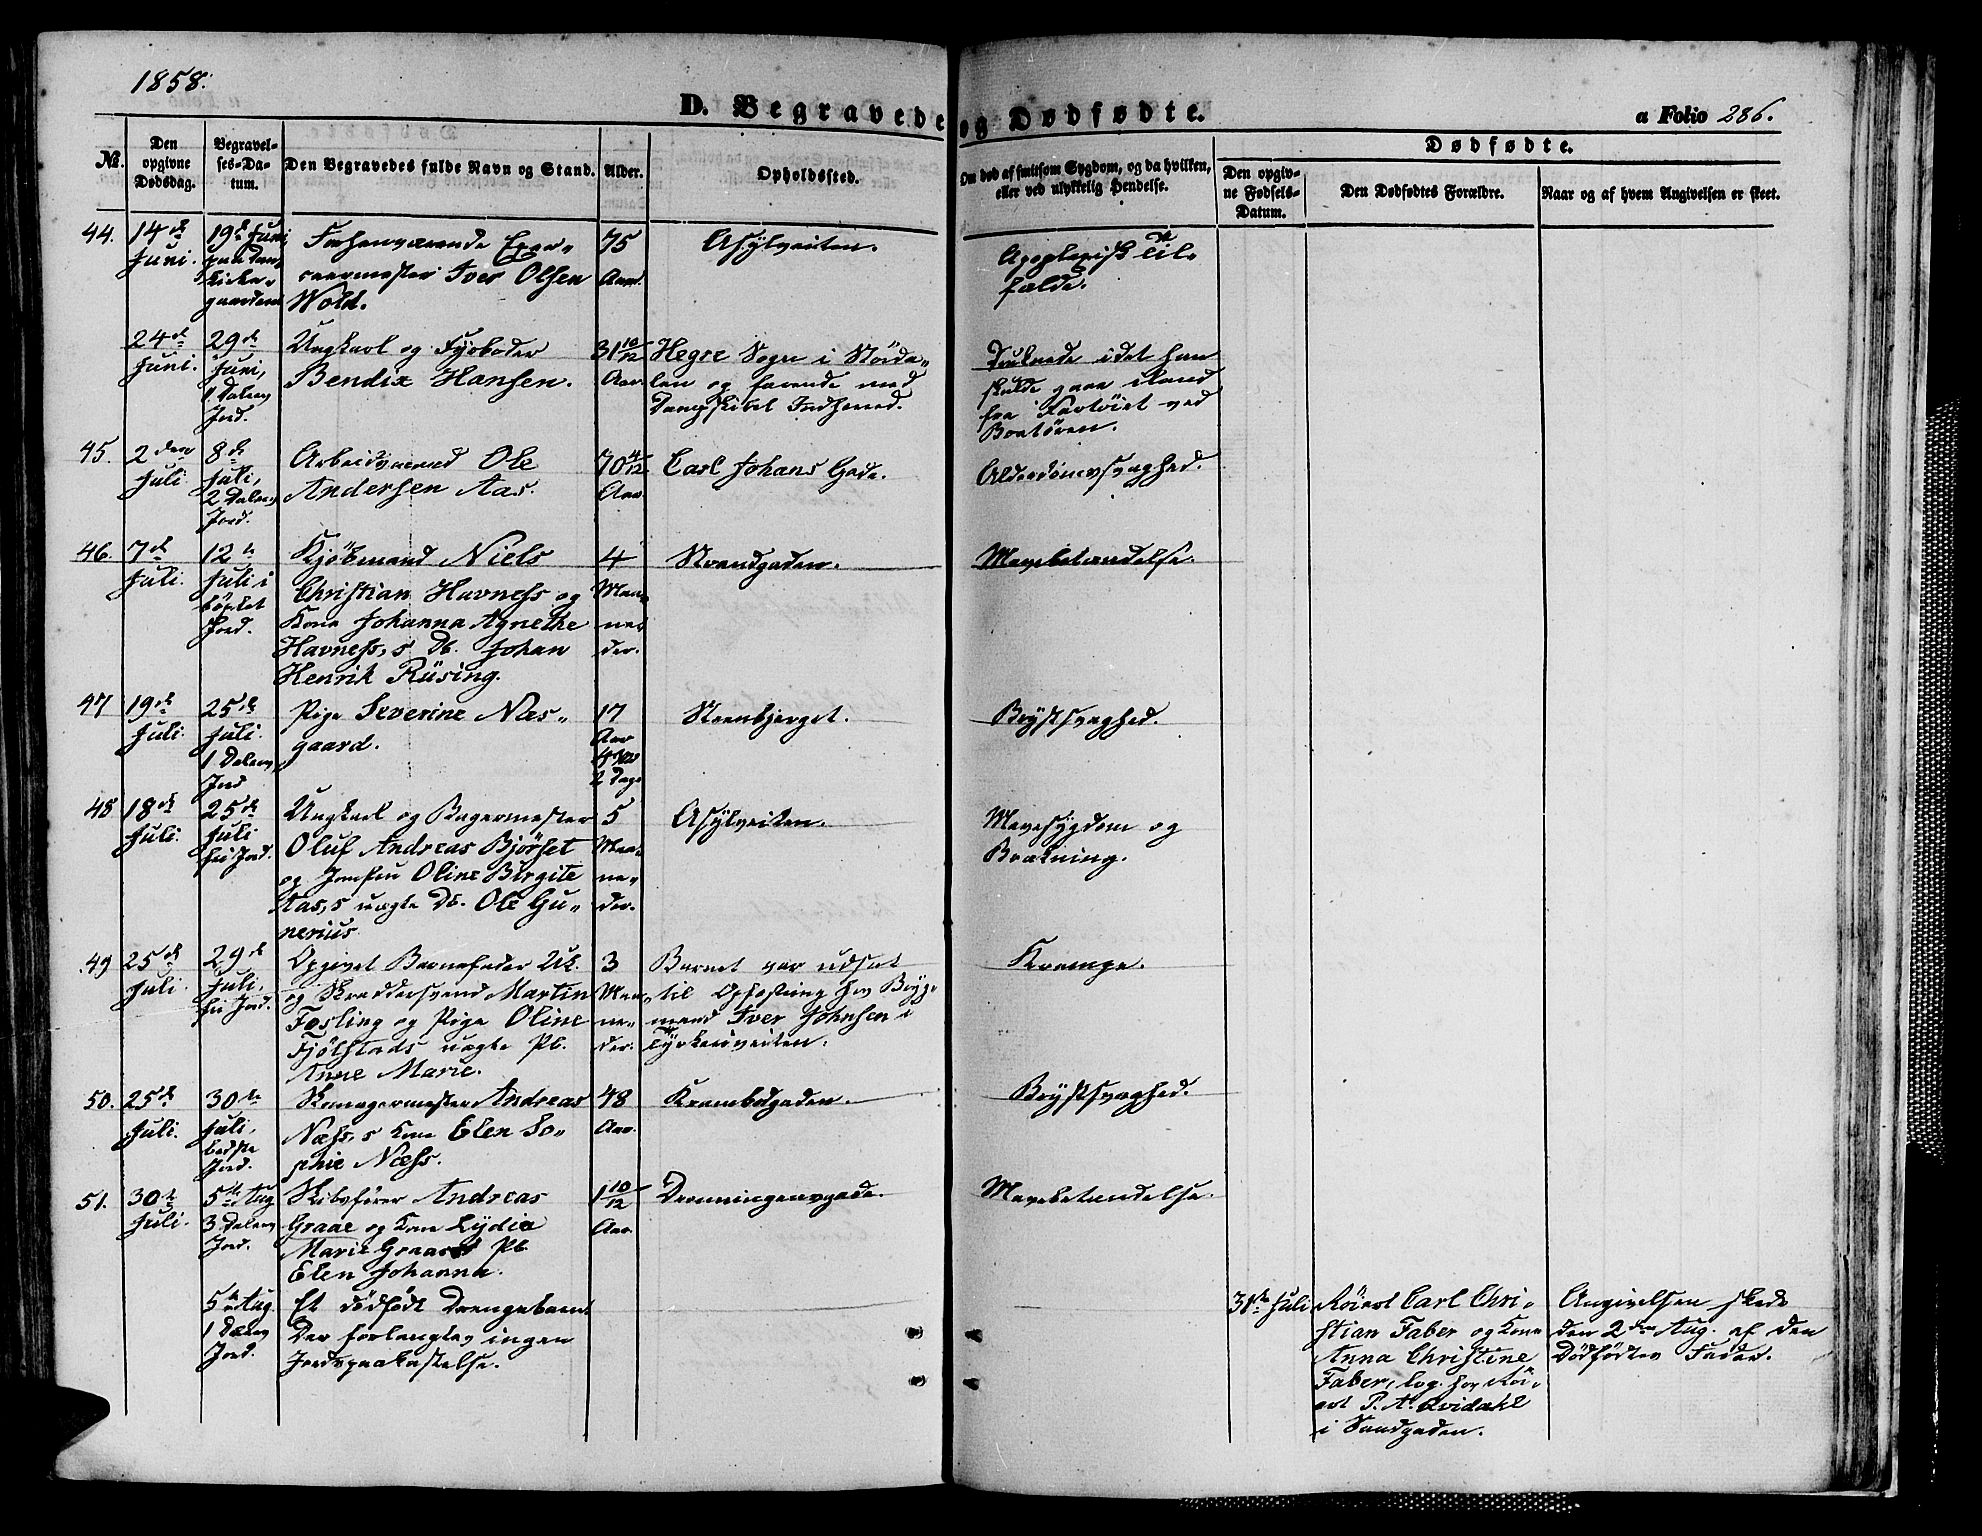 1858.
D. Begravede og Dødfødte.
a Folio 286.
No.
Den opgivne Dødsdag.
Begravel-ses-Da-tum.
Den Begravedes fulde Navn og Stand.
Alder.
Opholdssted.
Om død af smitsom Sygdom, og da hvilken,
eller ved ulykkelig Hendelse.
Dødfødte.
Den opgiv-ne Fødsels-Datum.
Den Dødfødtes Forældre.
Naar og af hvem Angivelsen er skeet.
44. 14de Juni. 19de Juni paa Kirke-gaarden
Forhenværende
Iver Olsen
Wold.
75 Aar.
Asylveiten.
Apoplexisk Til-
fælde.
24de Juni. 29de Juni, 1 Dalers Jord.
Ungkarl og Fyrbøder
Bendix Hansen.
31 10/12 Aar.
Hegre Sogn i Størda-
len og farende med
Dampskibet Indherred.
Druknede idet han
skulde gaae iland
fra Fartøiet ved
45. 2den Juli 8de Juli, 2 Dalers Jord.
Arbeidsmand Ole
Andersen Aas.
70 4/12 Aar.
Carl Johans Gade.
Alderdomssvaghed.
46. 7de Juli. 12te Juli i kjøbt Jord.
Kjøbmand Niels
Christian Havness og
Kone Johanna Agnethe
Havness,s Db. Johan
Henrik Rüsing.
4 Maa-ne-der.
Strandgaden.
Mavebetændelse.
47 19de Juli. 25de Juli. 1 Dalers Jord
Pige Severine Næs-
gaard.
17 Aar 2 Dage
Steenbjerget.
Brystsvaghed.
48 18de Juli. 25de Juli fri Jord.
Ungkarl og Bagermester
Oluf Andreas Bjørset
og Jomfru Oline Birgite
Aas,s uægte Db. Ole Gu-
nerius
5 Maa-ne-der.
Asylveiten.
Mavesygdom og
Brækning.
49 25de Juli. 29de Juli. fri Jord.
Opgivet Barnefader Uk.
og Skræddersvend Martin
Fosling og Pige Oline
Fjølstads uægte Pb.
Anne Marie.
3 Maa-ne-der.
Barnet var udsat
til Opfostring hos Bryg-
mand Iver Johnsen i
Tyskeiveiten.
Krampe.
50. 25de Juli. 30te Juli, bedste Jord.
Andreas
Næss,s Kone Elen So-
phie Næss.
48 Aar.
Krambodgaden.
Brystsvaghed.
51. 30te Juli. 5te Aug 3 Dalers Jord.
Skibsfører Andreas
Graae og Kone Lydia
Marie Graaes Pb.
Elen Johanna.
1 10/12 Aar.
Dronningensgade.
Mavebetændelse.
5te Aug. 1 Dalers Jord.
Et dødfødt Drengebarn.
Der forlangtes ingen
Jordspaakastelse.
31te Juli
Carl Chri-
stian Faber og Kone
Anna Christine
Faber, log. hos
P. A. Qvidahl
i Sandgaden.
Angivelsen skede
den 2den Aug. af den
Dødfødtes Fader.